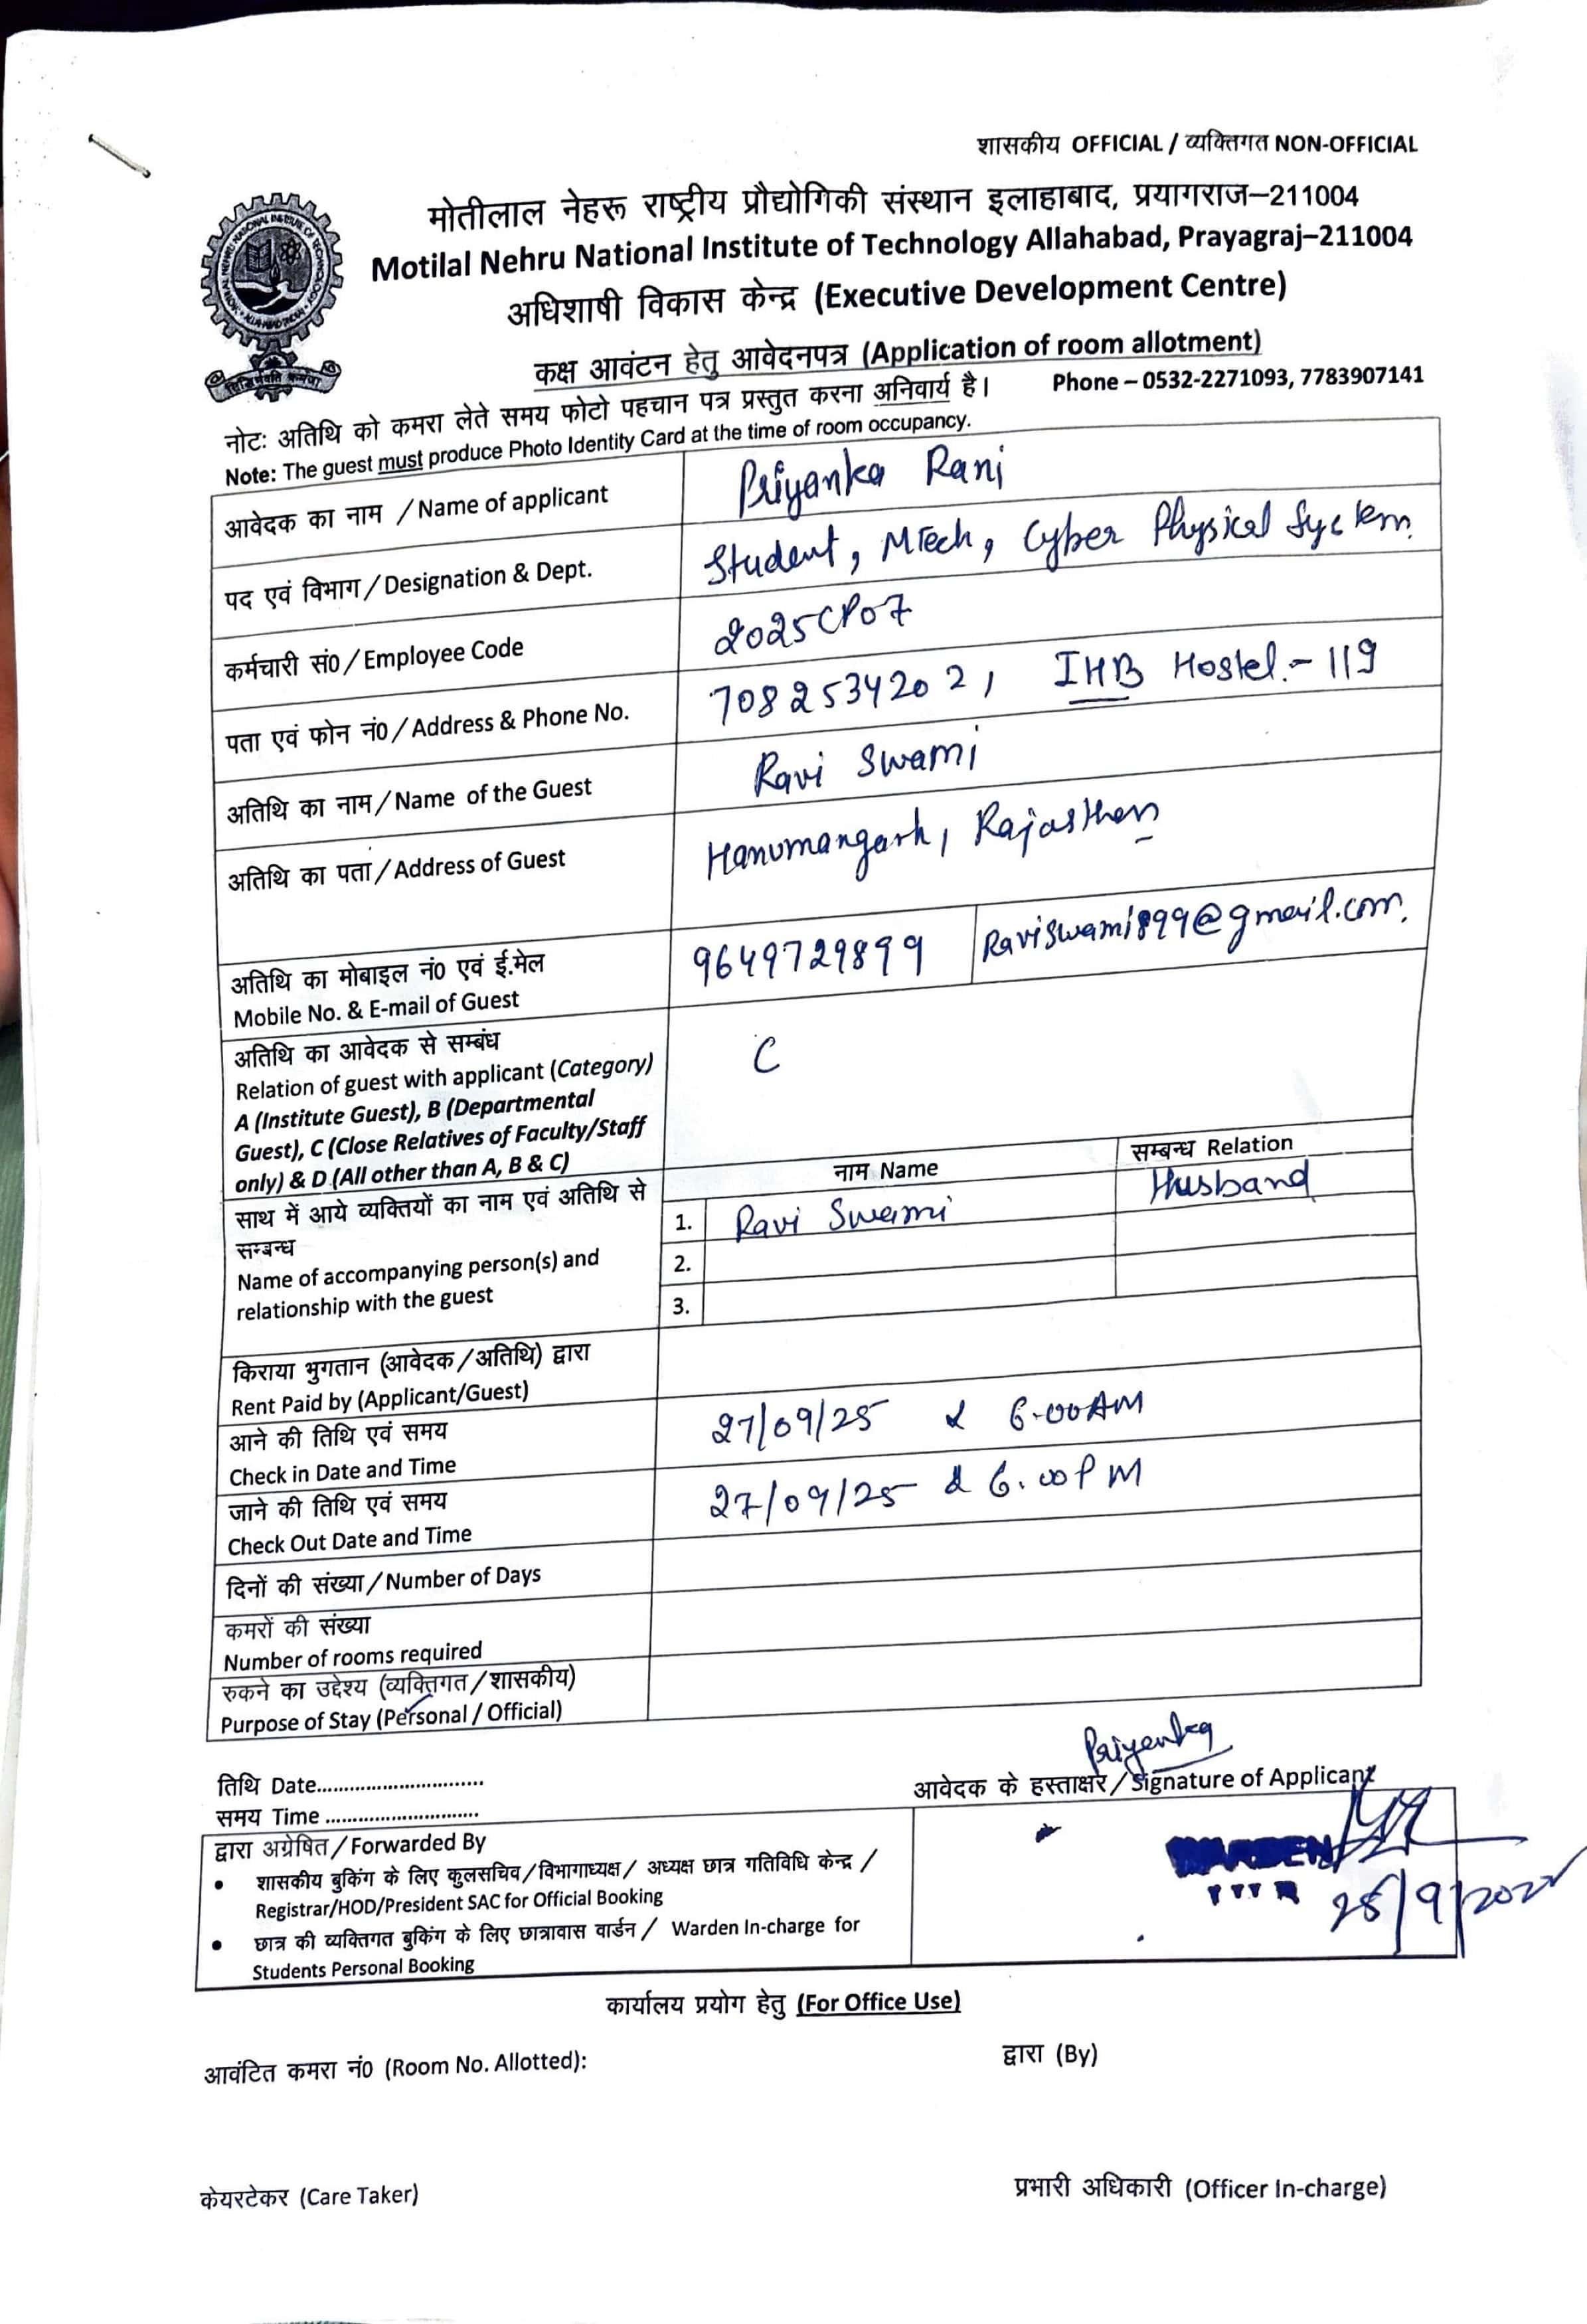 शासकीय OFFICIAL / व्यक्तिगत NON-OFFICIAL
मोतीलाल नेहरू राष्ट्रीय प्रौद्योगिकी संस्थान इलाहाबाद, प्रयागराज–211004
Motilal Nehru National Institute of Technology Allahabad, Prayagraj–211004
अधिशाषी विकास केन्द्र (Executive Development Centre)
कक्ष आवंटन हेतु आवेदनपत्र (Application of room allotment)
Phone – 0532-2271093, 7783907141
नोटः अतिथि को कमरा लेते समय फोटो पहचान पत्र प्रस्तुत करना अनिवार्य है।
Note: The guest must produce Photo Identity Card at the time of room occupancy.
आवेदक का नाम / Name of applicant Priyanka Rani
पद एवं विभाग / Designation & Dept. Student, MTech, Cyber Physical System
कर्मचारी सं0 / Employee Code 2025CP07
पता एवं फोन नं0 / Address & Phone No. 7082534202, IHB Hostel.- 119
अतिथि का नाम / Name of the Guest Ravi Swami
अतिथि का पता / Address of Guest Hanumangarh, Rajasthan
अतिथि का मोबाइल नं0 एवं ई.मेल
Mobile No. & E-mail of Guest 9649729899 Raviswami899@gmail.com.
अतिथि का आवेदक से सम्बंध
Relation of guest with applicant (Category) C
A (Institute Guest), B (Departmental
Guest), C (Close Relatives of Faculty/Staff
only) & D (All other than A, B & C)
साथ में आये व्यक्तियों का नाम एवं अतिथि से
सम्बन्ध
Name of accompanying person(s) and
relationship with the guest
नाम Name सम्बन्ध Relation
1. Ravi Swami Husband
2.
3.
किराया भुगतान (आवेदक / अतिथि) द्वारा
Rent Paid by (Applicant/Guest)
आने की तिथि एवं समय
Check in Date and Time 27/09/25 & 6.00AM
जाने की तिथि एवं समय
Check Out Date and Time 27/09/25 & 6.00PM
दिनों की संख्या / Number of Days
कमरों की संख्या
Number of rooms required
रुकने का उद्देश्य (व्यक्तिगत / शासकीय)
Purpose of Stay (Personal / Official)
Priyanka
तिथि Date..............................
आवेदक के हस्ताक्षर / Signature of Applicant
समय Time ............................
द्वारा अग्रेषित / Forwarded By
• शासकीय बुकिंग के लिए कुलसचिव / विभागाध्यक्ष / अध्यक्ष छात्र गतिविधि केन्द्र /
Registrar/HOD/President SAC for Official Booking
• छात्र की व्यक्तिगत बुकिंग के लिए छात्रावास वार्डन / Warden In-charge for
Students Personal Booking
WARDEN
कार्यालय प्रयोग हेतु (For Office Use)
आवंटित कमरा नं0 (Room No. Allotted):
द्वारा (By)
केयरटेकर (Care Taker)
प्रभारी अधिकारी (Officer In-charge)